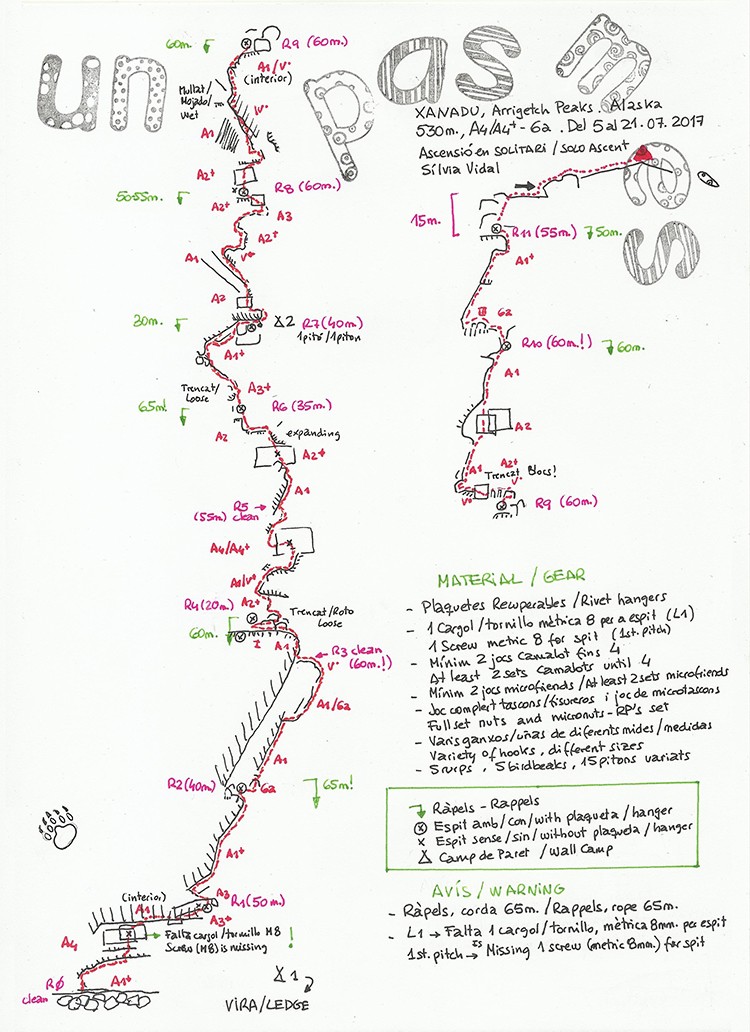 un pas més
XANADU, Arrigetch Peaks. Alaska
530m., A4/A4+ - 6a. Del 5 al 21.07.2017
Ascensió en SOLITARI / SOLO Ascent
Sílvia Vidal
60m.
R9 (60m.)
A1/V°
(interior)
Mullat/
Mojado/
Wet
IV°
A1
A2+
R8 (60m.)
50-55m.
A2+
A3
A2+
A1
V°
A2
30m.
2
R7 (40m)
1 pitó/1 piton
A1+
Trencat/
Loose
A3+
65m!
R6 (35m.)
A2
expanding
A2+
A1
R5
(55m) clean
A4/A4+
A1/V°
A2+
R4 (20m)
Trencat/Roto
Loose
60m.
I
A1
R3 clean
(60m.!)
V°
A1/6a
A1
R2 (40m)
6a
65m!
A1+
A3
R1 (50m)
(interior)
A1
A3+
A4
Falta cargol/tornillo M8
Screw (M8) is missing
!
R0
clean
A1+
1
VIRA/LEDGE
15m.
R11 (55m)
50m.
A1+
II
6a
R10 (60m.!)
60m.
A1
A2
A1
A2+
Trencat Blocs!
V°
V°
R9 (60m)
MATERIAL / GEAR
- Plaquetes Recuperables / Rivet hangers
- 1 Cargol / tornillo mètrica 8 per a espit (L1)
1 Screw metric 8 for spit (1st. pitch)
- Mínim 2 jocs Camalot fins 4
At least 2 sets Camalots until 4
- Mínim 2 jocs microfriends / At least 2 sets microfriends
- Joc complert tascons/fisureros i joc de microtascons
Full set nuts and micronuts - RP's set
- Varis ganxos/uñas de diferents mides / medidas
Variety of hooks, different sizes
- 5 rurps, 5 birdbeaks, 15 pitons variats
Ràpels - Rappels
Espit amb/con/with plaqueta/hanger
Espit sense/sin/without plaqueta/hanger
Camp de Paret / Wall Camp
AVÍS / WARNING
- Ràpels, corda 65m. / Rappels, rope 65m.
- L1 → Falta 1 cargol/tornillo, mètrica 8mm. per espit
1st. pitch → Is Missing 1 screw (metric 8mm.) for spit